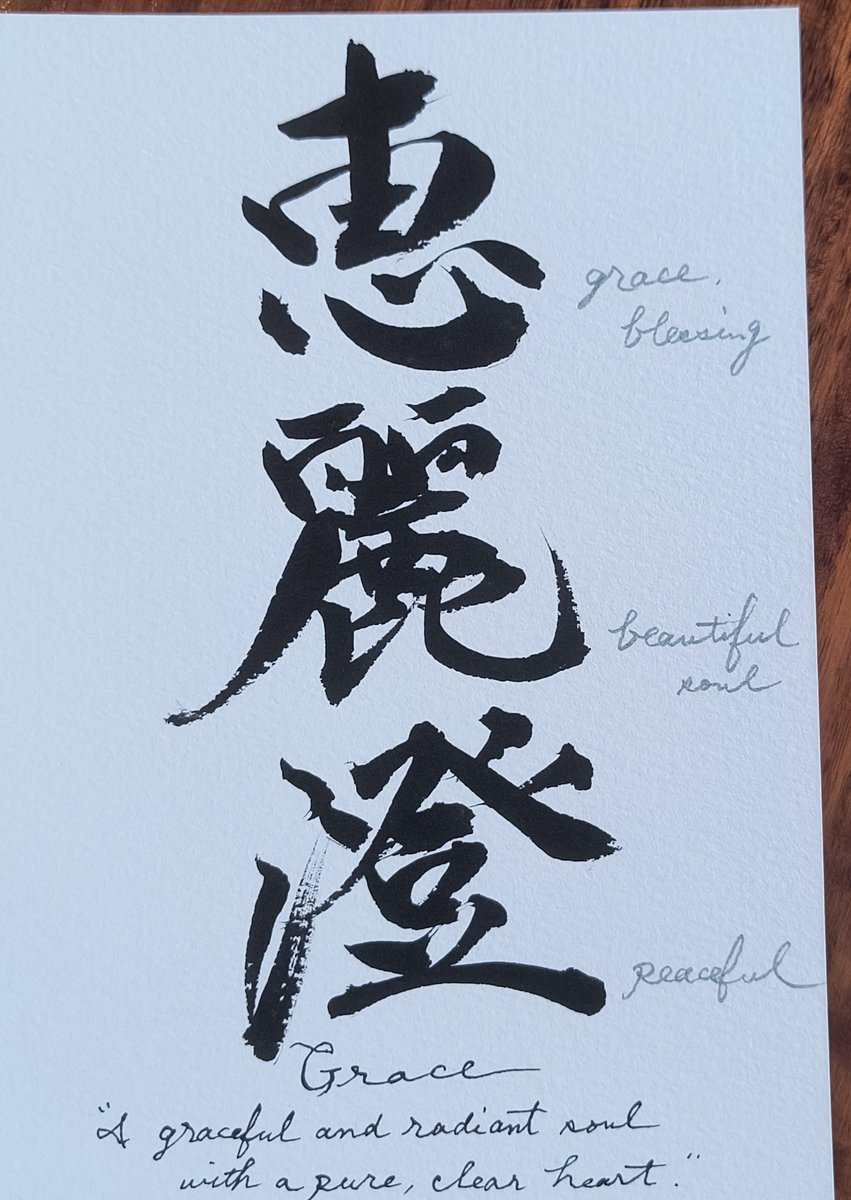 恵
grace,
blessing
麗
beautiful
soul
澄
peaceful
Grace
"A graceful and radiant soul
with a pure, clear heart."